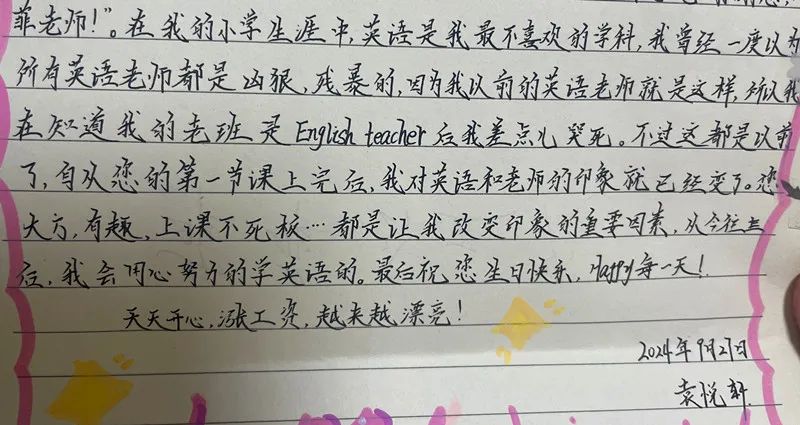 菲老师!”。在我的小学生涯中,英语是我最不喜欢的学科,我曾经一度以为
所有英语老师都是凶狠,残暴的,因为我以前的英语老师就是这样,所以我
在知道我的老班是English teacher后我差点儿哭死。不过这都是以前
了,自从您的第一节课上完后,我对英语和老师的印象就已经变了。您
大方,有趣,上课不死板…都是让我改变印象的重要因素,从今往
后,我会用心努力的学英语的。最后祝您生日快乐,Happy每一天!
天天开心,涨工资,越来越漂亮!
2024年9月27日
袁悦轩